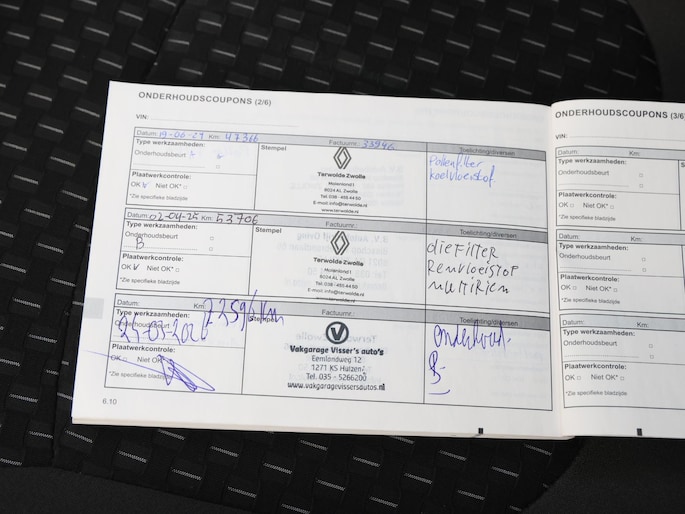 ONDERHOUDSCOUPONS (2/6)
VIN:
Datum: 19-06-24 Km: 47366 Factuurnr.: 33946 Toelichting/diversen
Type werkzaamheden:
Onderhoudsbeurt
Plaatwerkcontrole:
OK V Niet OK*
*Zie specifieke bladzijde
Stempel
Terwolde Zwolle
Molenland 1
8024 AL Zwolle
Tel: 038 - 455 44 50
E-mail: info@terwolde.nl
www.terwolde.nl
Pollenfilter
koelvloeistof
Datum: 02-04-25 Km: 53706 Factuurnr.: Toelichting/diversen
Type werkzaamheden:
Onderhoudsbeurt
B
Plaatwerkcontrole:
OK V Niet OK*
*Zie specifieke bladzijde
Stempel
Terwolde Zwolle
Molenland 1
8024 AL Zwolle
Tel: 038 - 455 44 50
E-mail: info@terwolde.nl
www.terwolde.nl
olieFilter
Remvloeistof
Datum: Km: Factuurnr.: Toelichting/diversen
Type werkzaamheden:
Onderhoudsbeurt
Plaatwerkcontrole:
OK Niet OK*
*Zie specifieke bladzijde
Stempel
Vakgarage Visser's auto's
Eemlandweg 12
1271 KS Huizen
Tel. 035 - 5266200
www.vakgaragevissersautos.nl
onderhoud
B
6.10
ONDERHOUDSCOUPONS (3/6)
VIN:
Datum: Km:
Type werkzaamheden:
Onderhoudsbeurt
Plaatwerkcontrole:
OK Niet OK*
*Zie specifieke bladzijde
Datum: Km:
Type werkzaamheden:
Onderhoudsbeurt
Plaatwerkcontrole:
OK Niet OK*
*Zie specifieke bladzijde
Datum: Km:
Type werkzaamheden:
Onderhoudsbeurt
Plaatwerkcontrole:
OK Niet OK*
*Zie specifieke bladzijde